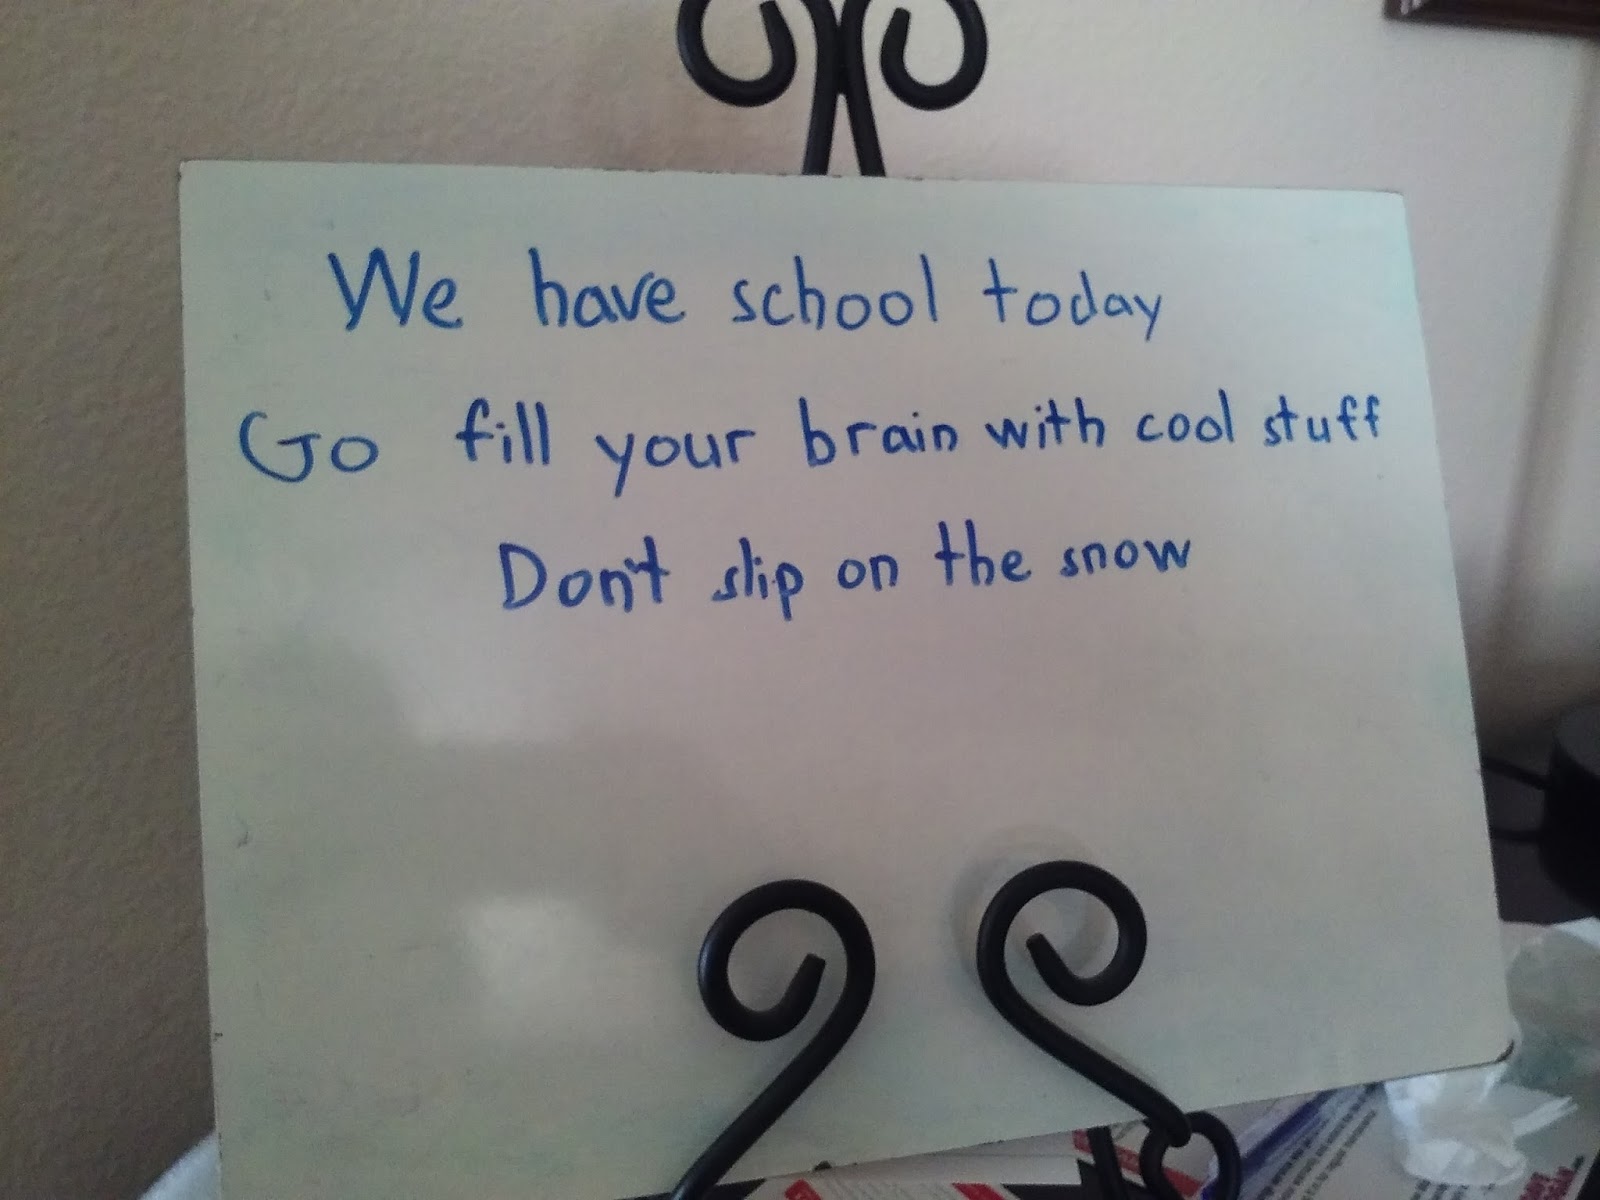 We have school today
Go fill your brain with cool stuff
Don't slip on the snow